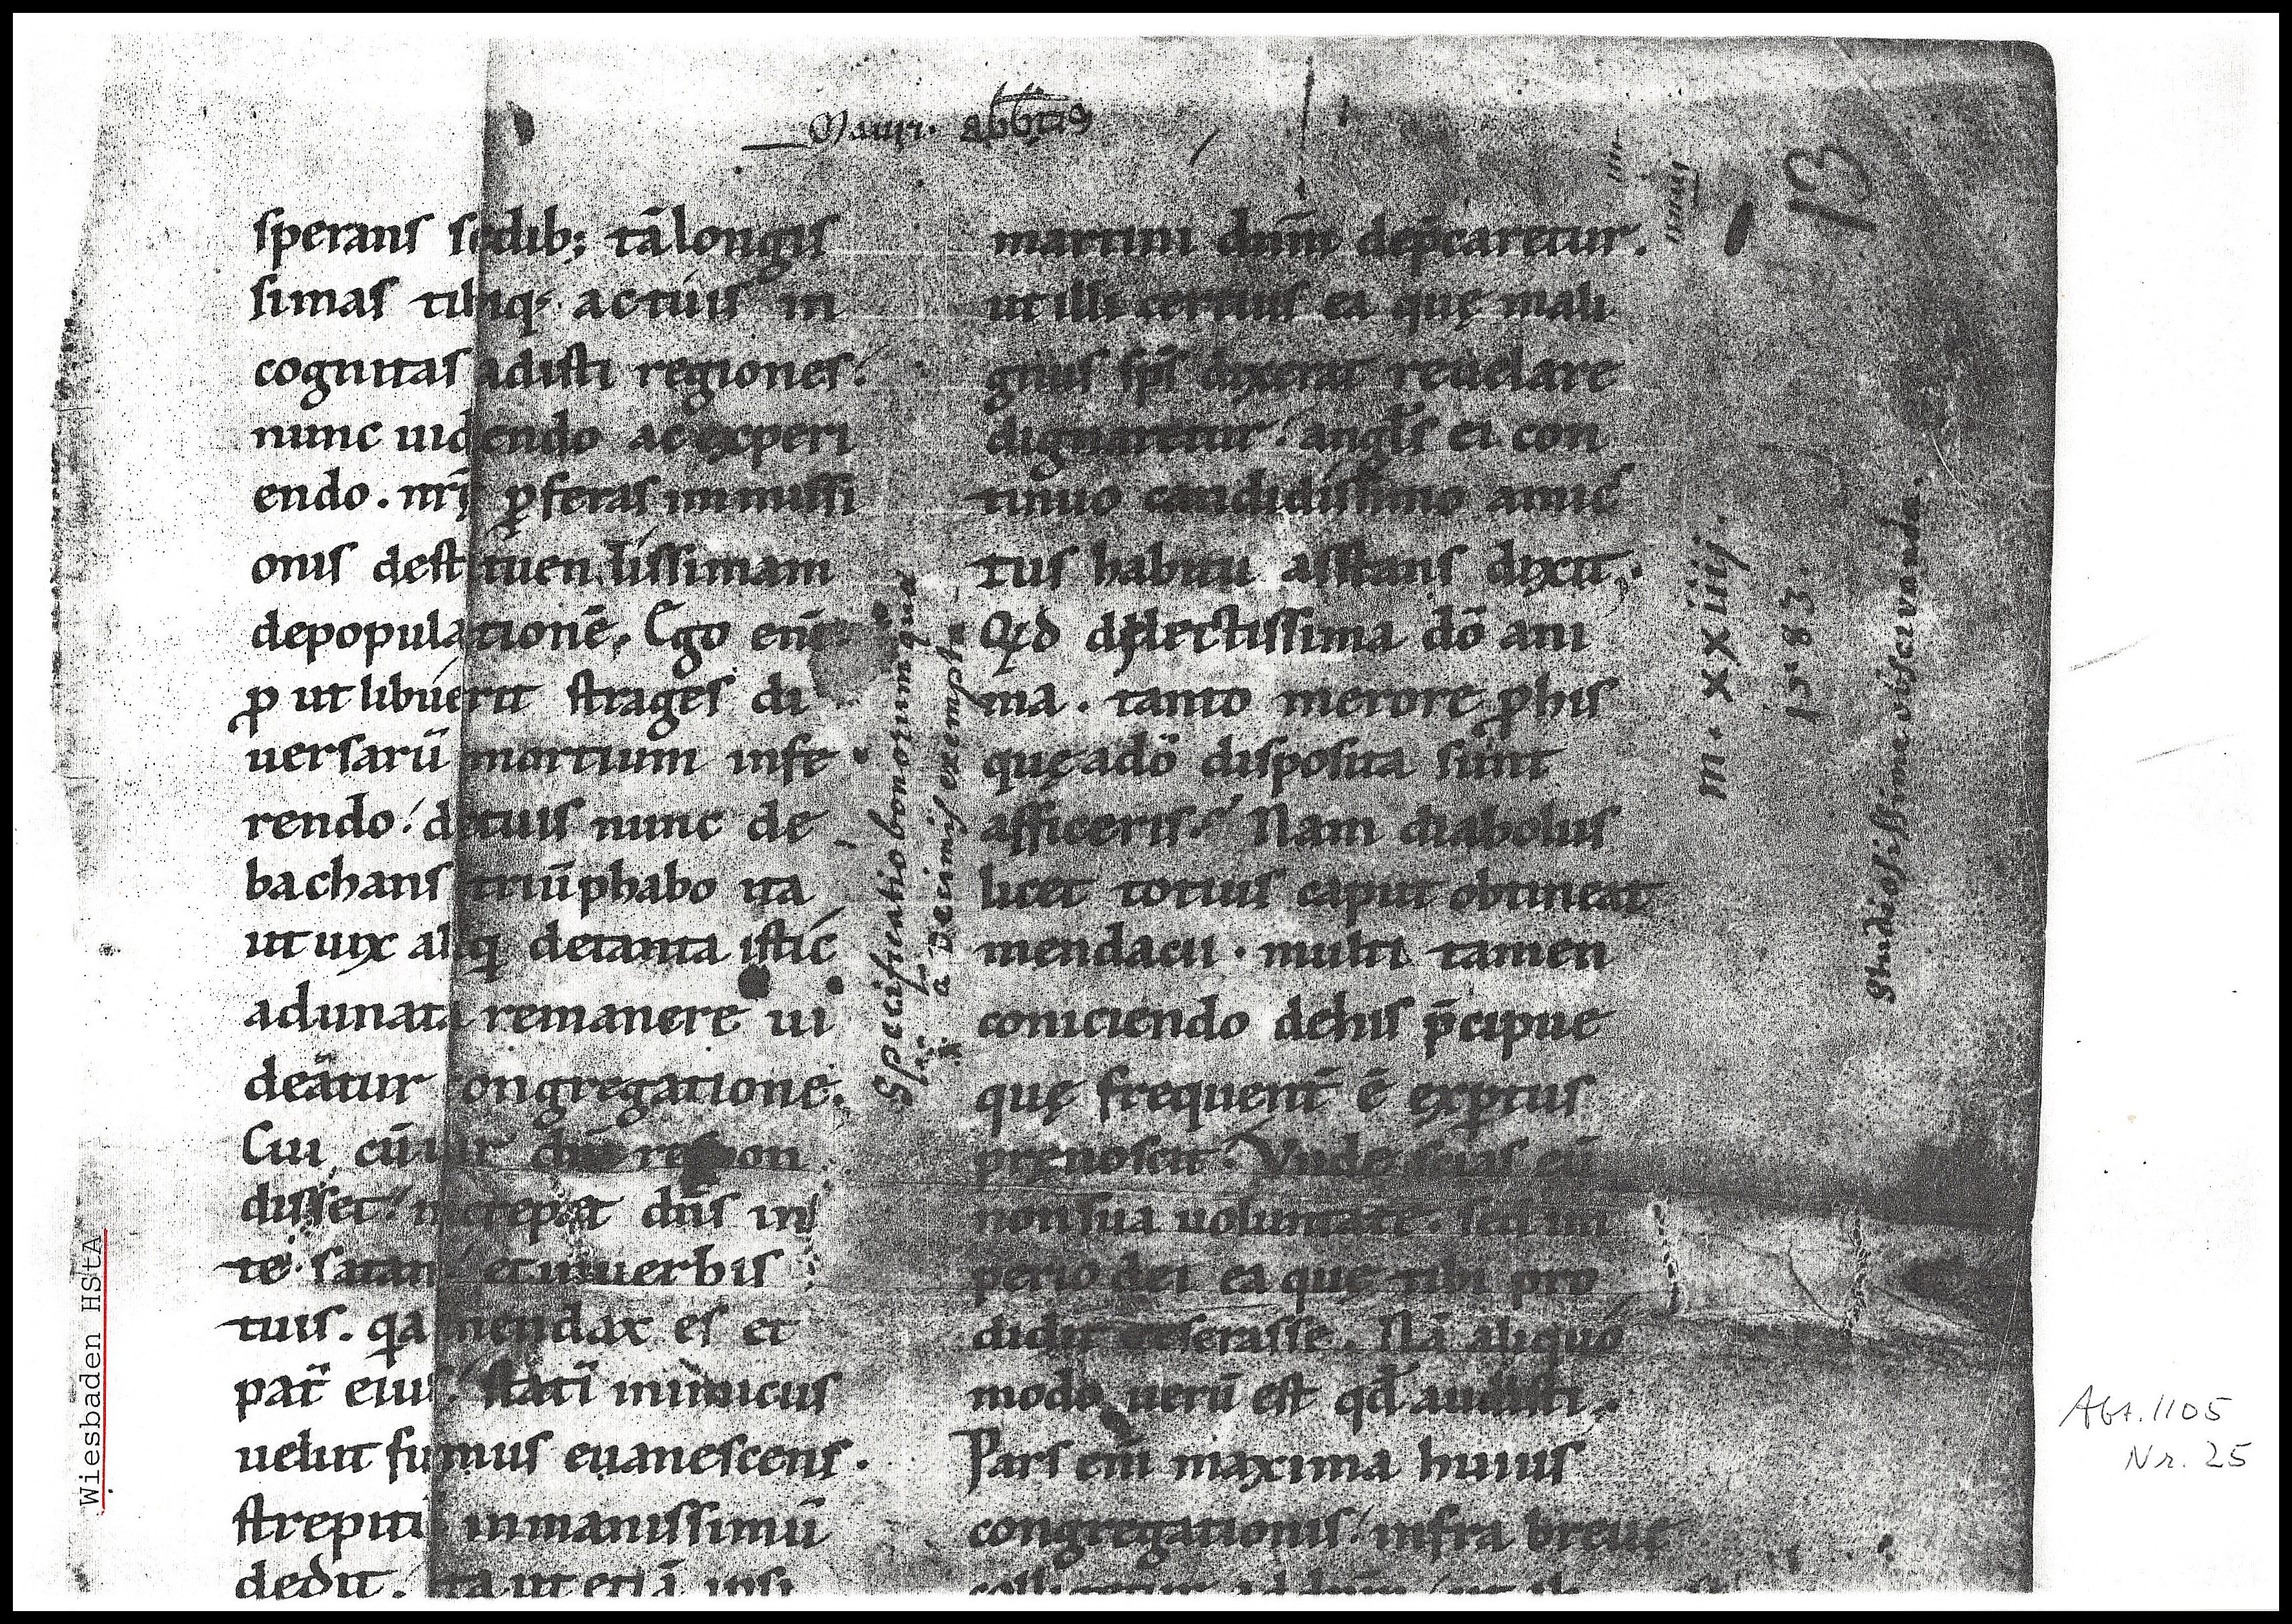 Mauri. abbtis
sperans sedib; tā longis
simas tibiq; actuis in
cognitas adisti regiones.
nunc uidendo ac experi
endo. nrı̄ ꝓferas immissi
onis destituentissimam
depopulationē. Ego enī
ꝓ ut libuerit strages di
uersarū mortium infe
rendo. detuis nunc de
bachans triūphabo ita
ut uix aliq detanta istic
adunata remanere ui
deātur congregatione.
Cui cū dn̄s respon
disset. increpat dn̄s in
te satan et inuerbis
tuis. qa mendax es et
pat̄ eius. statī inimicus
uelut fumus euanescens.
strepitū inmanissimū
dedit. ita ut etiā ipsi
martini dn̄m dep̄caretur.
ut illi certius ea quę mali
gnus sp̄s dixerat reuelare
dignaretur. angl̄s ei con
tinuo candidissimo amic
tus habitu asstans dixit.
Qd dilectissima dō ani
ma. tanto merore ꝓ his
quę adō disposita sunt
afficeris. Nam diabolus
licet totius caput obtineat
mendacii. multi tamen
coniciendo dehis p̄cipue
quę frequent̄ ē exꝑtus
pręnoscit. Vnde scias eū
non sua uoluntate. sed im
perio dei ea quę tibi pro
didit reserasse. Nā aliquo
modo uerū est qđ audisti.
Pars enī maxima huius
congregationis. infra breue
Specificatio bonorum quae
a Decimis exempta
m. xxiiij.
1583.
Studiosissime observanda.
13
Wiesbaden HStA
Abt. 1105
Nr. 25